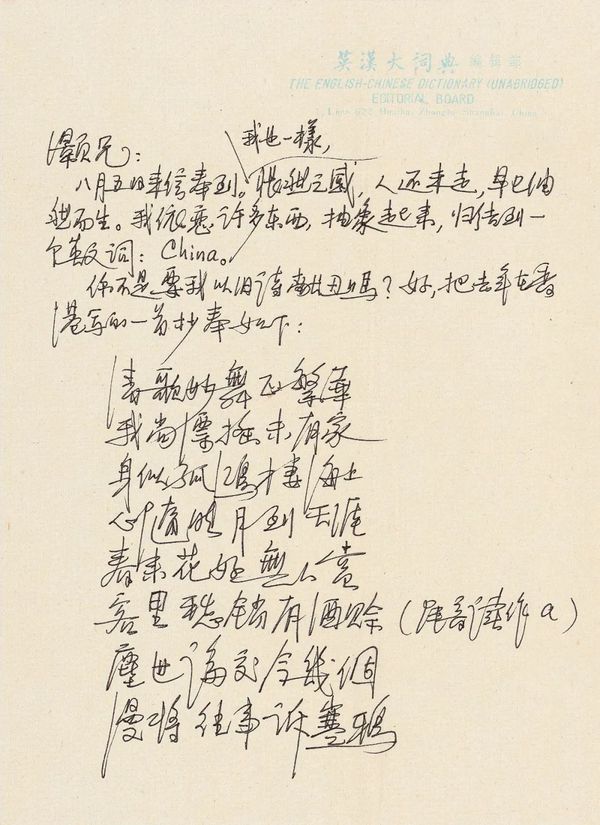 英漢大词典 编辑部
THE ENGLISH-CHINESE DICTIONARY (UNABRIDGED)
EDITORIAL BOARD
Lane 622 Huaihai Zhonglu Shanghai, China
灏兄：
我也一樣，
八月五日来信奉到。怅甜之感，人还未走，早已油
甜而生。我微 许多东西，抽象起来，归结到一
个英文词：China。
你不是要我以旧诗献丑嗎？好，把去年在香
港写的一首抄奉如下：
清歌妙舞正繁華
我尚漂搖未有家
身似孤鴻才棲海上
心隨明月到天涯
春来花好無人賞
客里愁銷有酒賒（賒音读作a）
塵世論交今幾個
漫將往事訴寒鴉